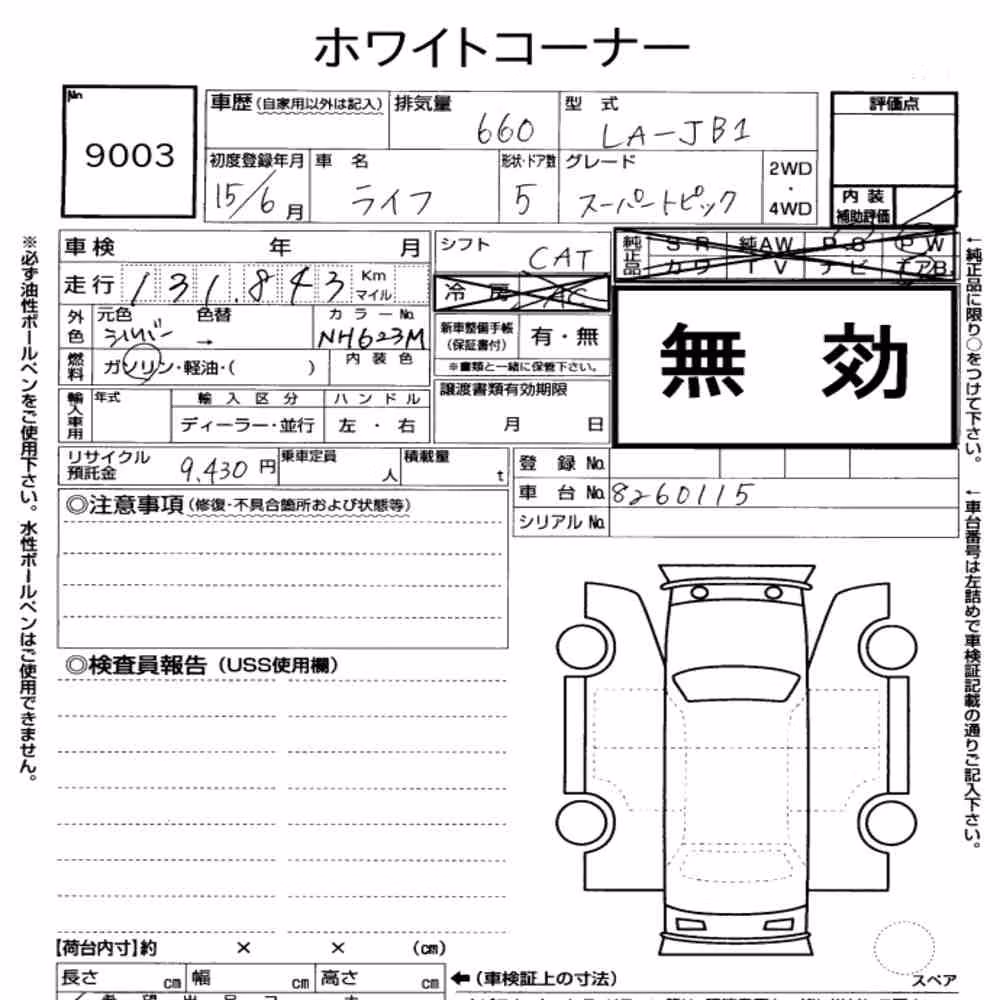 ホワイトコーナー
No. 9003
車歴(自家用以外は記入) 排気量 660 型式 LA-JB1 評価点
初度登録年月 15/6月 車名 ライフ 形状・ドア数 5 グレード スーパートピック 2WD・4WD
内装補助評価
車検 年 月 シフト CAT 純正品 SR 純AW PS PW
カワ TV ナビ エアB
走行 131,843 Km マイル 冷房 AC
外色 元色 シルバー 色替 → カラーNo. NH623M 新車整備手帳(保証書付) 有・無
無効
燃料 ガソリン・軽油・( ) 内装色 ※書類と一緒に保管下さい。
輸入車用 年式 輸入区分 ディーラー・並行 ハンドル 左・右 譲渡書類有効期限 月 日
リサイクル預託金 9,430円 乗車定員 人 積載量 t 登録No.
車台No. 8260115
シリアルNo.
◎注意事項(修復・不具合箇所および状態等)
◎検査員報告(USS使用欄)
【荷台内寸】約 × × (cm)
長さ cm 幅 cm 高さ cm ←(車検証上の寸法)
スペア
※必ず油性ボールペンをご使用下さい。水性ボールペンはご使用できません。
←純正品に限り○をつけて下さい。
←車台番号は左詰めで車検証記載の通りご記入下さい。